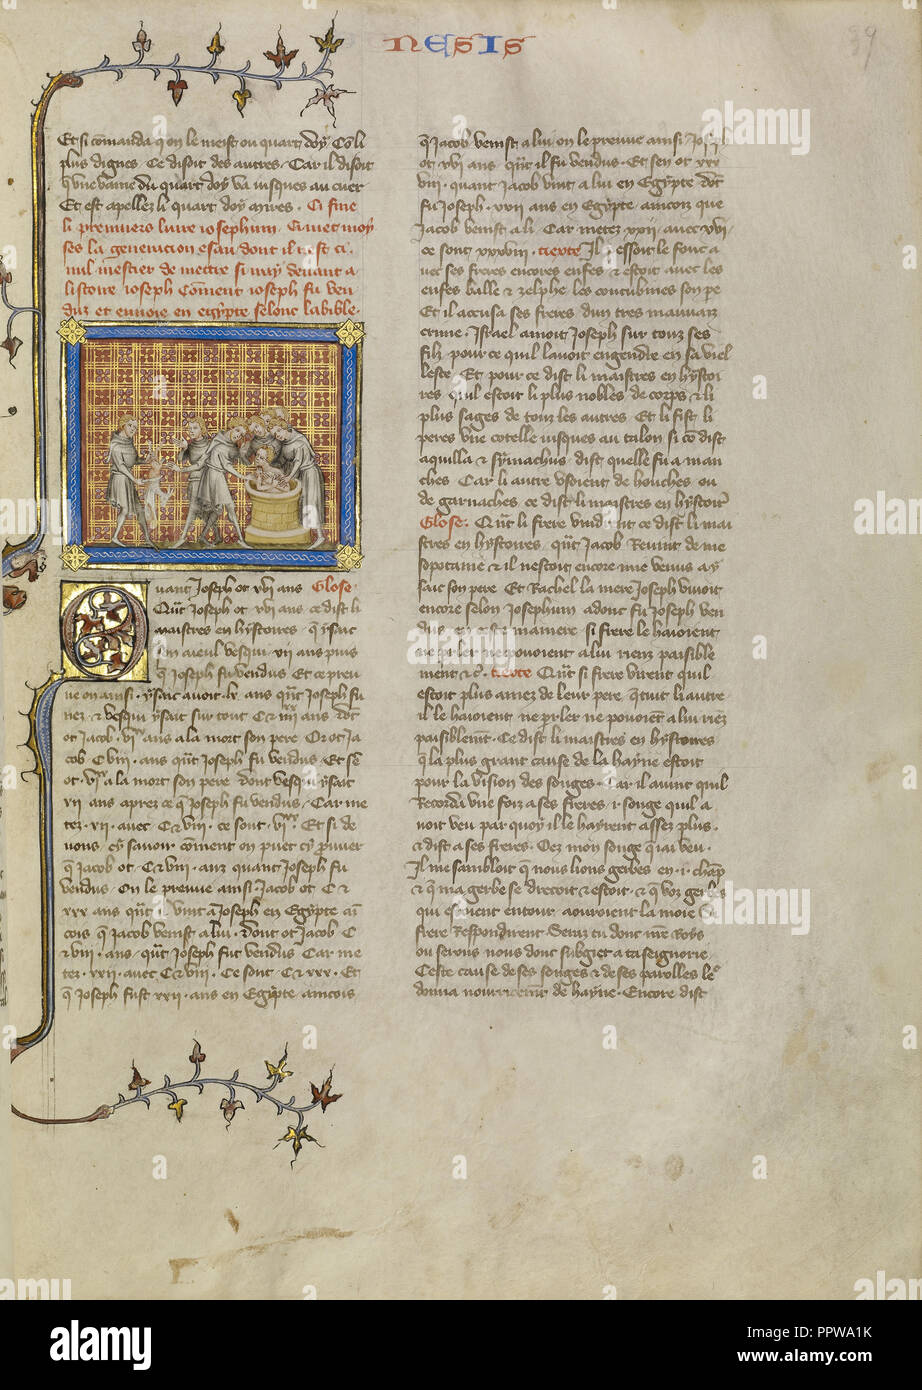 NESIS
39
Et si comanda q on le meist ou quart doy. Co li
plus dignes. Ce disoit des autres. Car il disoit
q vne vaine du quart doy va iusques au cuer
Et est apellez li quart doy mires. Ci fine
li premiers liure iosephum. Ci met moy
ses la generacion esau dont il nest ci
nul mestier de mectre si vay deuant a
listoire ioseph. Coment ioseph fu ven
duz et enuoie en egypte selonc la bible.
Quant Joseph ot xvi ans Glose.
Qut Joseph ot xvi ans ce dist li
maistres en hystoires. q ysaac
son aieul vesqui xii ans puis
q Joseph fu vendus. Et ce preu
ue on ainsi. ysaac auoit lx ans qut Joseph fu
nez. & vesqui ysaac sur tout C & iiii ans dot
ot Jacob vi ans a la mort son pere Or ot Ja
cob C viii ans qut Joseph fu vendus. Et se
ot vi a la mort son pere dont vesqui ysaac
xii ans aprez ce q Joseph fu vendus. Car me
tez xii auec C & viii ce sont vi. Et si de
uons cy sauoir coment on puet cy prouuer
q Jacob ot C & viii anz quant Joseph fu
vendus. On le preuue ainsi Jacob ot C &
xxx ans qut il vint a Joseph en Egypte ai
cois q Jacob venist a lui. dont ot Jacob C
& viii ans qut Joseph fut vendus Car me
tez xxii auec C & viii. Ce sont C & xxx. Et
q Joseph fust xxii ans en Egypte aincois
q Jacob venist a lui on le preuue ainsi Joseph
ot xvi ans qut il fu vendus. Et sen ot xxx
viii quant Jacob vint a lui en Egypte dot
fu Joseph xxii ans en Egypte aincoiz que
Jacob venist a li. Car metez xxii auec xvi
ce sont xxxviii. tiexte Il pessoit le fouc a
uec ses freres encores enfes & estoit auec les
enfes balle & zelphe les concubines son pe
Et il accusa ses freres dun tres mauuaiz
crime. Israel amoit Joseph sur touz ses
filz pour ce quil lauoit engendre en sa viel
lesce. Et pour ce dist li maistres en hystoi
res quil estoit li plus nobles de corps & li
plus sages de touz les autres. Et li fist li
peres vne cotelle iusques au talon si co dist
aquilla & symachus dist quelle fu a man
ches. Car li autre vsoient de houches ou
de garnaches ce dist li maistres en hystoires
Glose. Qut li frere vindrent ce dist li mai
stres en hystoires qut Jacob reuint de me
sopotame & il nestoit encore mie venus a y
saac son pere Et Rachel la mere Joseph viuoit
encore selon Josephum adonc fu Joseph ven
dus en ceste maniere si frere le haioient
ne pler ne pouoient a lui riens paisible
ment &c. tiexte Qut si frere virent quil
estoit plus amez de leur pere q tuit li autre.
il le haioient ne pler ne pouoient a lui riez
paisiblemt. Ce dist li maistres en hystoires
q la plus grant cause de la hayne estoit
pour la vision des songes. Car il auint quil
Recorda vne foiz a ses freres i songe quil a
uoit veu par quoy il le hayrent assez plus.
& dist a ses freres. Oez mon songe q iai veu.
Il me sambloit q nous lions gerbes en i chap
& q ma gerbe se drecoit & estoit & q voz gerbes
qui estoient entour aouroient la moie Si
frere Respondirent. Seras tu donc nre Roys
ou serons nous donc subgiet a ta seignorie.
Ceste cause de ses songes & de ses parolles le
donna nourricemt de hayne. Encore dist
alamy
PPWA1K
www.alamy.com